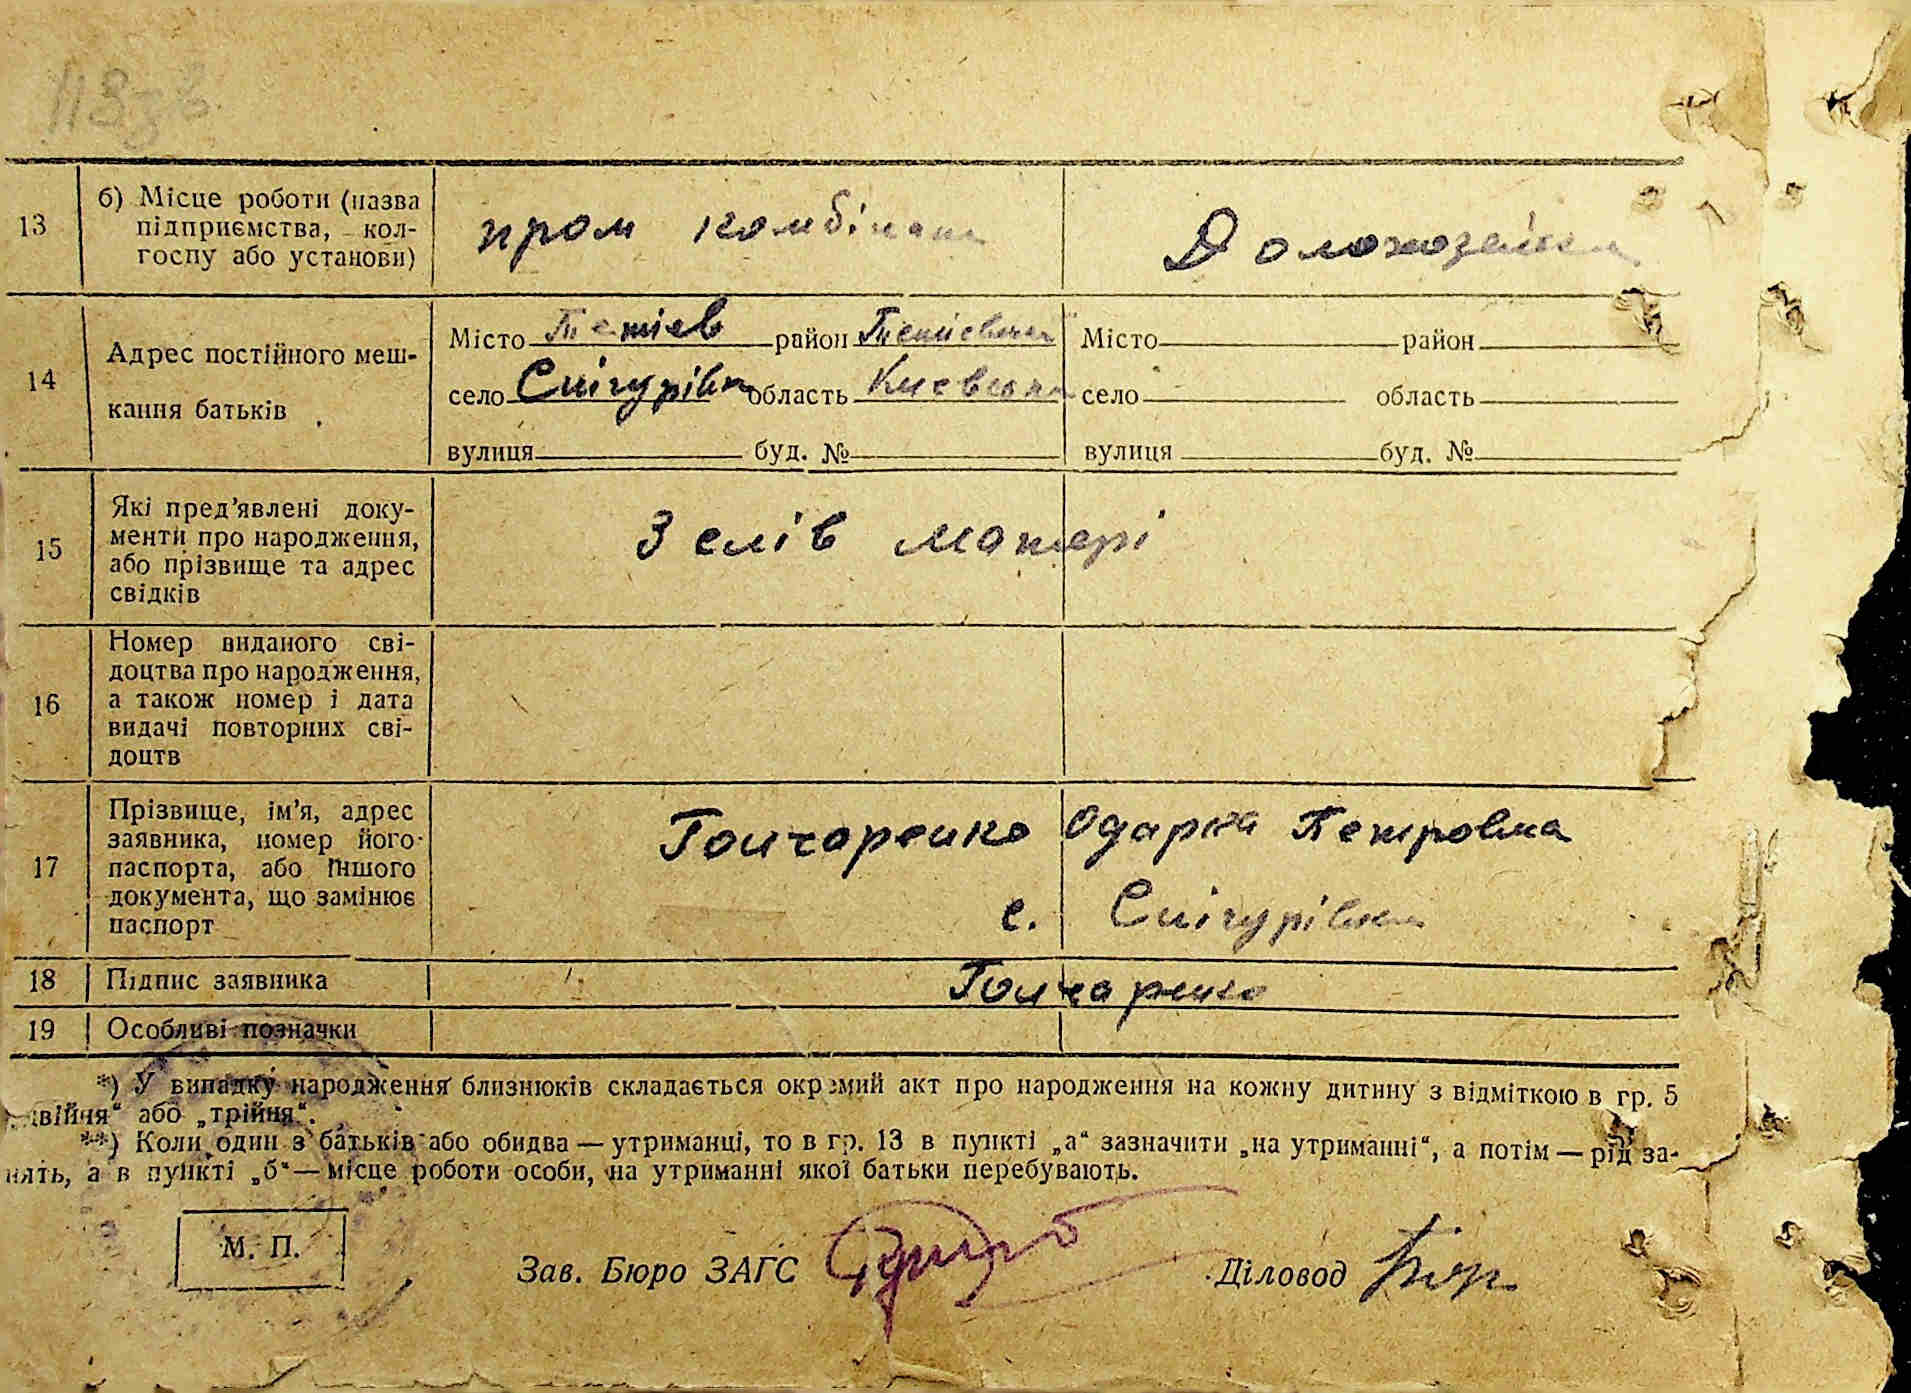 113зв
13
б) Місце роботи (назва
підприємства, кол-
госпу або установи)
пром комбінат
Домохозяйка
14
Адрес постійного меш-
кання батьків
Місто Тетіев район Тетіевський
село Снігурівка область Києвська
вулиця буд. №
Місто район
село область
вулиця буд. №
15
Які пред'явлені доку-
менти про народження,
або прізвище та адрес
свідків
З слів матері
16
Номер виданого сві-
доцтва про народження,
а також номер і дата
видачі повторних сві-
доцтв
17
Прізвище, ім'я, адрес
заявника, номер його
паспорта, або іншого
документа, що замінює
паспорт
Гончаренко Одарка Петровна
с. Снігурівка
18 Підпис заявника
Гончаренко
19 Особливі позначки
*) У випадку народження близнюків складається окремий акт про народження на кожну дитину з відміткою в гр. 5
двійня“ або „трійня“.
**) Коли один з батьків або обидва — утриманці, то в гр. 13 в пункті „а“ зазначити „на утриманні“, а потім — рід за-
нять, а в пункті „б“ — місце роботи особи, на утриманні якої батьки перебувають.
М. П.
Зав. Бюро ЗАГС
Діловод